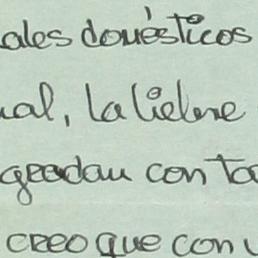 ales domésticos
al, la liebre
gradan con ta
creo que con